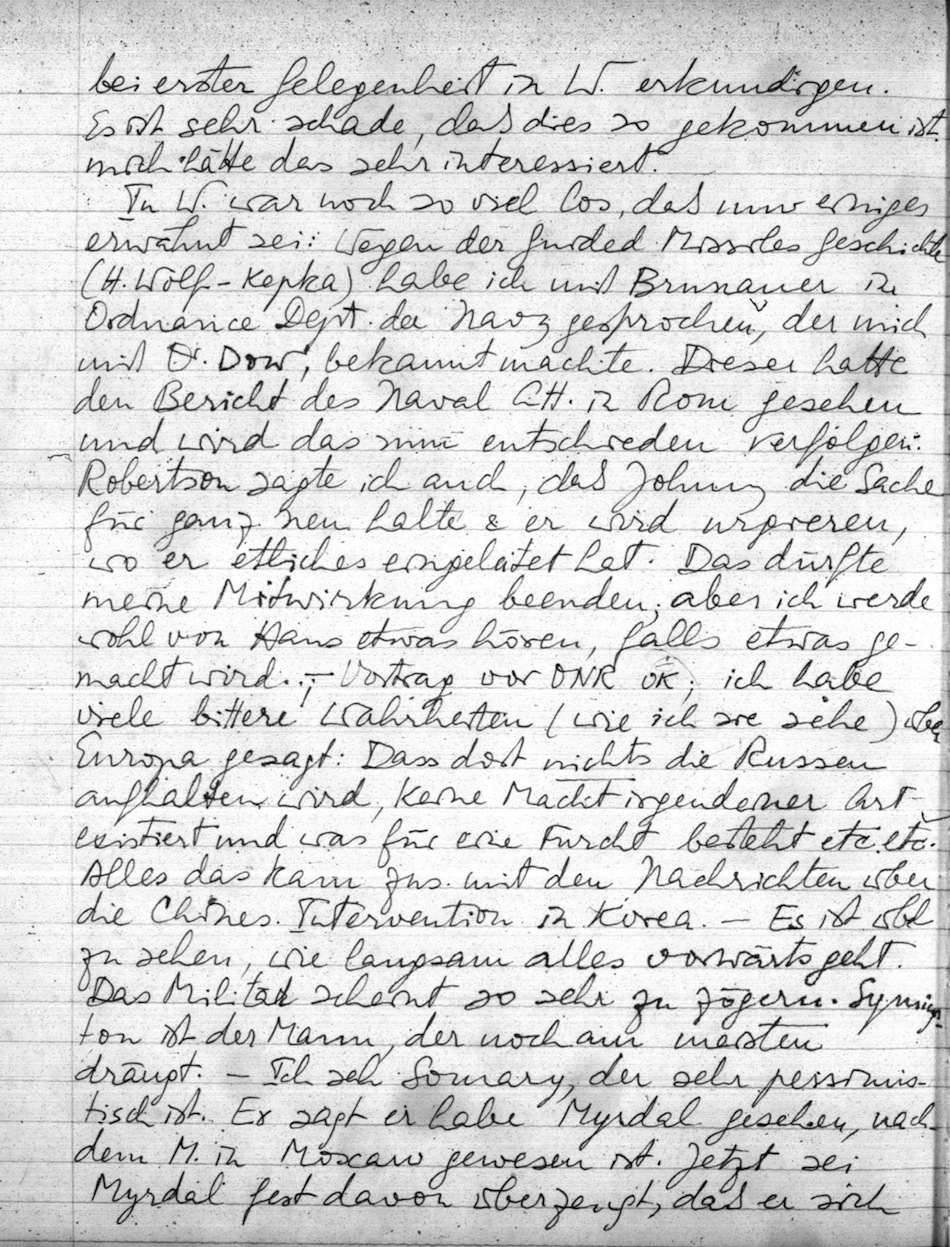 bei erster Gelegenheit in W. erkundigen.
Es ist sehr schade, daß dies so gekommen ist
mich hätte das sehr interessiert.
In W. war noch so viel los, daß nur einiges
erwähnt sei: Wegen der guided Missiles Geschichte
(H. Wolf-Kepka) habe ich mit Brunauer in
Ordnance Dept. der Navy gesprochen, der mich
mit Dr. Dow, bekannt machte. Dieser hatte
den Bericht des Naval Att. in Rom gesehen
und wird das nun entschieden verfolgen.
Robertson sagte ich auch, daß Johnny die Sache
für ganz neu halte & er wird urgieren,
wo er etliches eingeleitet hat. Das dürfte
meine Mitwirkung beenden, aber ich werde
wohl von Hans etwas hören, falls etwas ge-
macht wird. – Vortrag vor ONR OK; ich habe
viele bittere Wahrheiten (wie ich sie sehe) über
Europa gesagt: Dass dort nichts die Russen
aufhalten wird, keine Macht irgendeiner Art
existiert und was für eine Furcht besteht etc. etc.
Alles das kam zus. mit den Nachrichten über
die Chines. Intervention in Korea. – Es ist übel
zu sehen, wie langsam alles vorwärts geht.
Das Militär scheint so sehr zu zögern. Syming-
ton ist der Mann, der noch am meisten
drängt. – Ich seh Somary, der sehr pessimis-
tisch ist. Er sagt er habe Myrdal gesehen, nach-
dem M. in Moscaw gewesen ist. Jetzt sei
Myrdal fest davon überzeugt, daß er sich